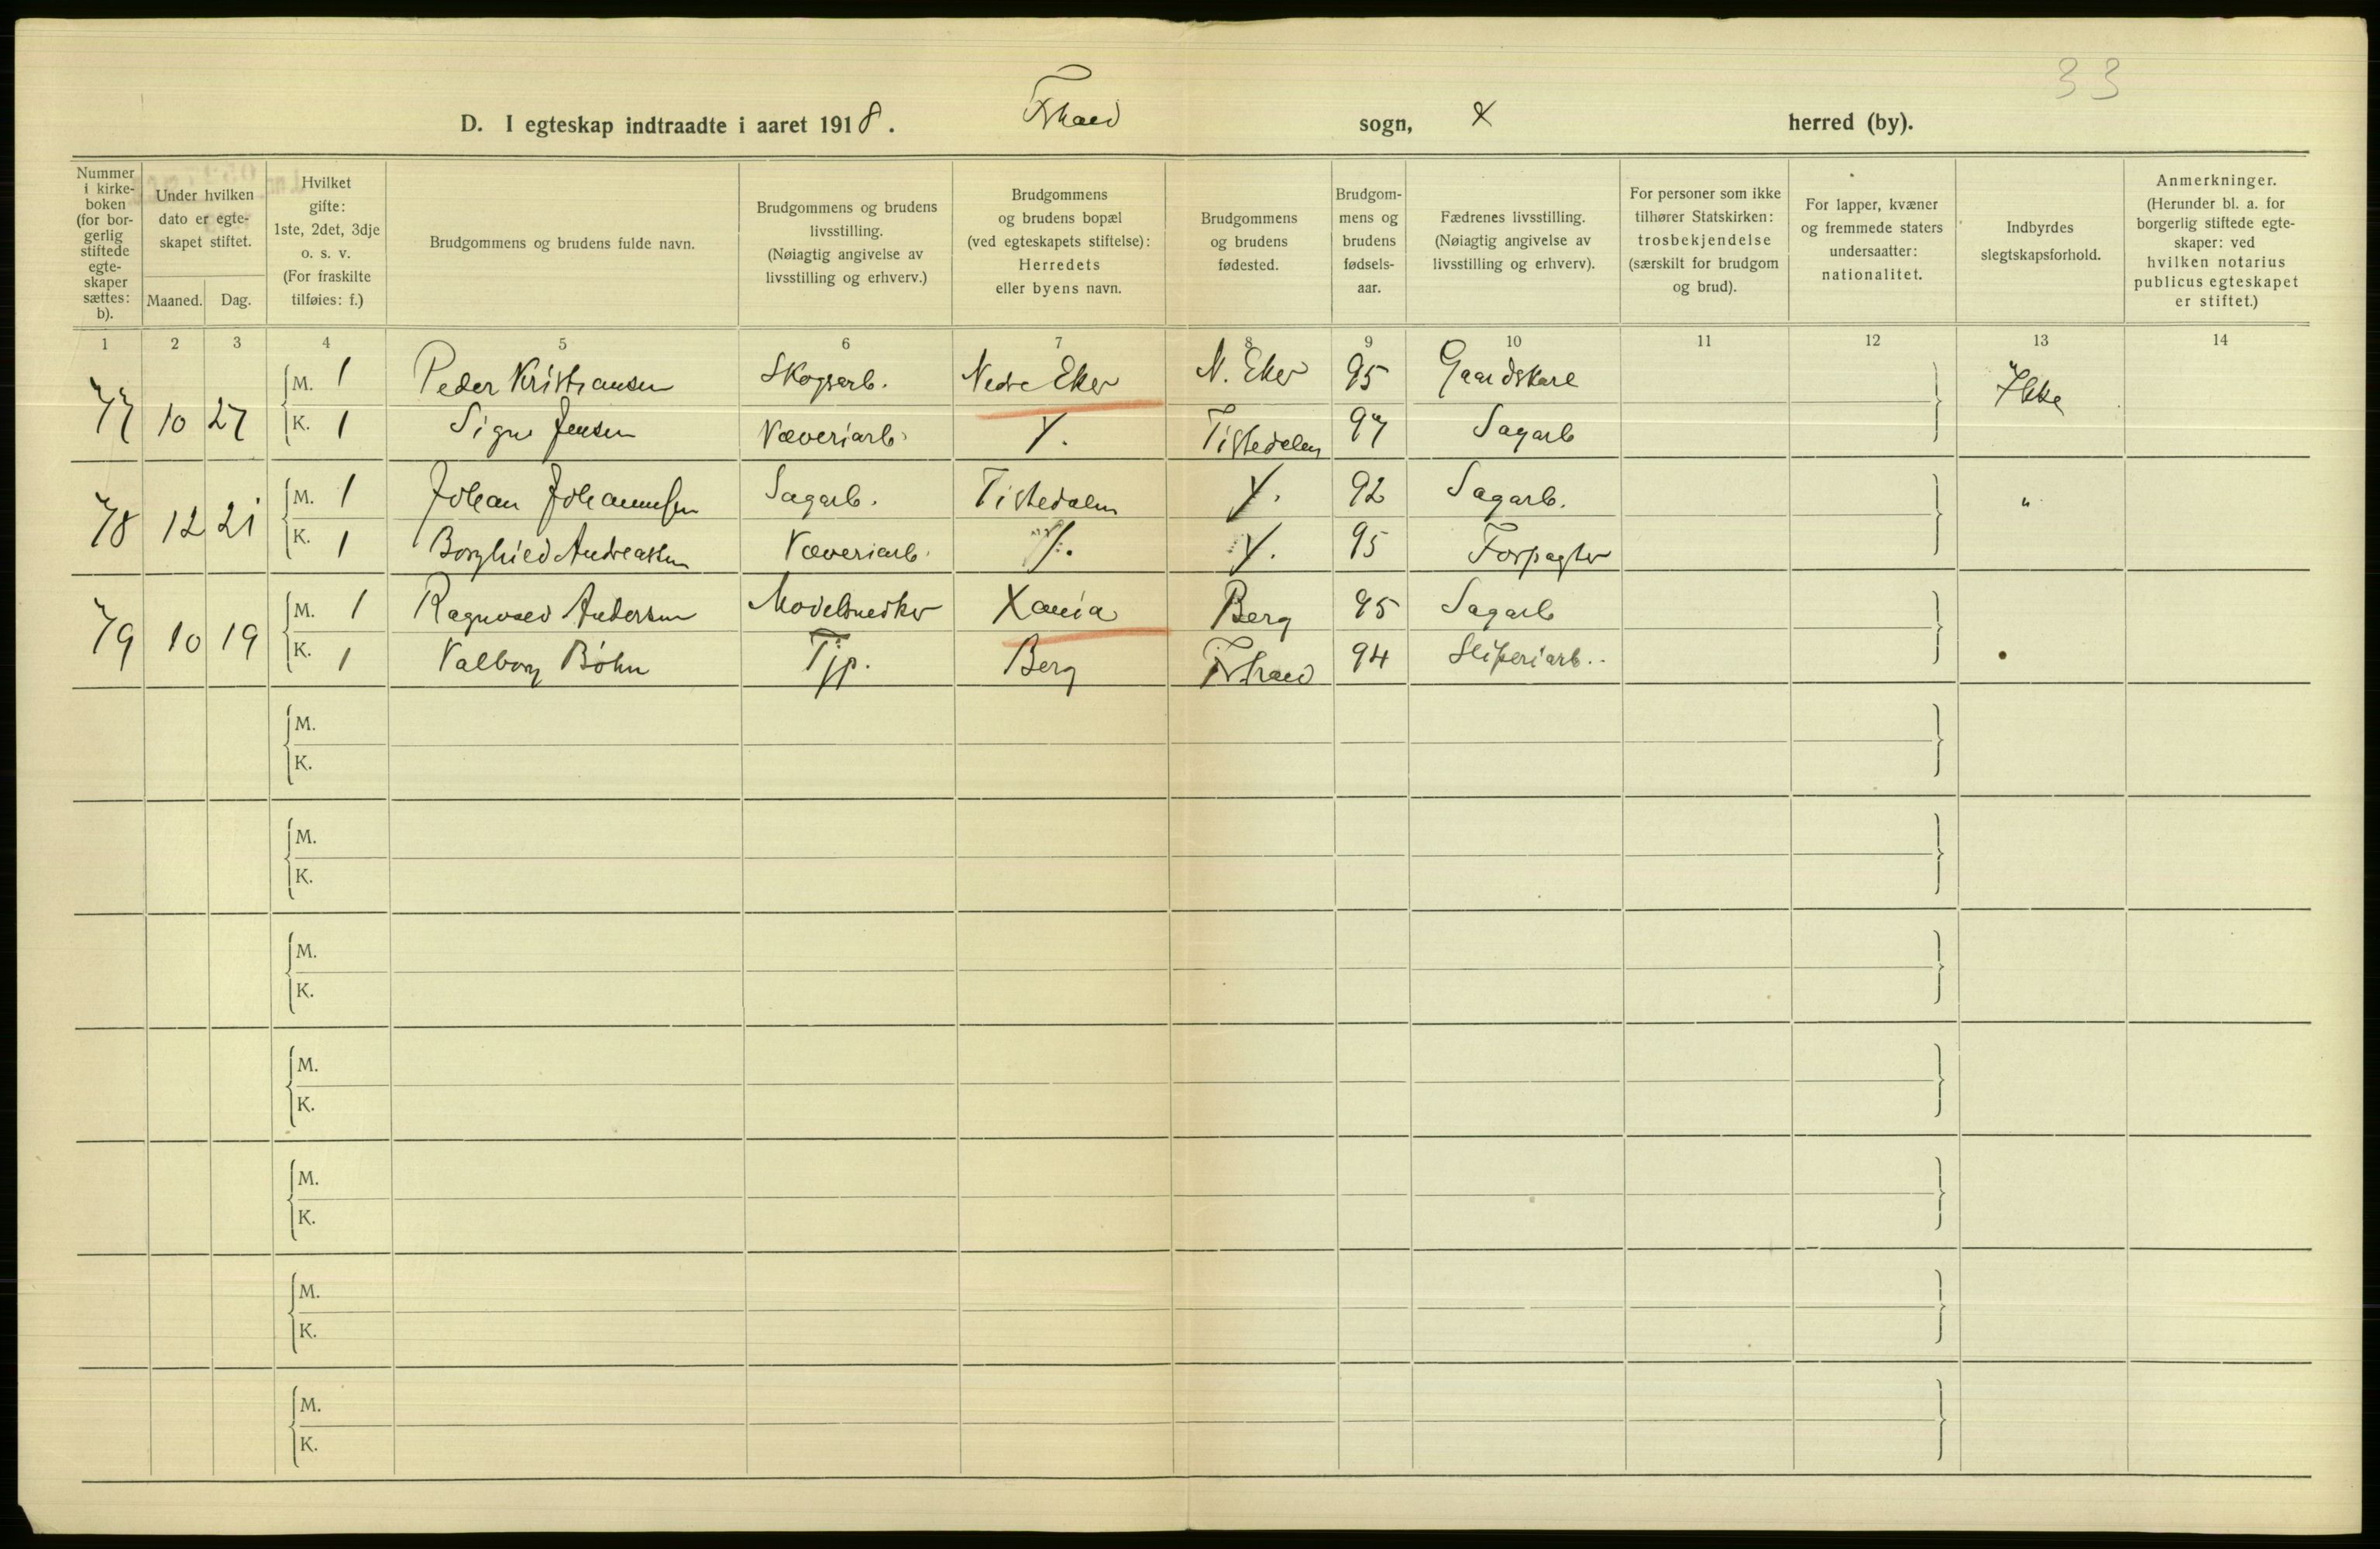 33
D. I egteskap indtraadte i aaret 1918. Fr.hald sogn, herred (by).
Nummer i kirkeboken (for borgerlig stiftede egteskaper sættes: b).
Under hvilken dato er egteskapet stiftet.
Maaned. Dag.
Hvilket gifte: 1ste, 2det, 3dje o. s. v. (For fraskilte tilføies: f.)
Brudgommens og brudens fulde navn.
Brudgommens og brudens livsstilling. (Nøiagtig angivelse av livsstilling og erhverv.)
Brudgommens og brudens bopæl (ved egteskapets stiftelse): Herredets eller byens navn.
Brudgommens og brudens fødested.
Brudgommens og brudens fødselsaar.
Fædrenes livsstilling. (Nøiagtig angivelse av livsstilling og erhverv).
For personer som ikke tilhører Statskirken: trosbekjendelse (særskilt for brudgom og brud).
For lapper, kvæner og fremmede staters undersaatter: nationalitet.
Indbyrdes slegtskapsforhold.
Anmerkninger. (Herunder bl. a. for borgerlig stiftede egteskaper: ved hvilken notarius publicus egteskapet er stiftet.)
1 2 3 4 5 6 7 8 9 10 11 12 13 14
77 10 27 M. 1 Peder Kristiansen Skogsarb. Nedre Eker N. Eker 95 Gaardskarl Ikke
K. 1 Signe Jensen Væveriarb. Tistedalen 97 Sagarb
78 12 21 M. 1 Johan Johannesen Sagarb. Tistedalen 92 Sagarb. "
K. 1 Borghild Andreassen Væveriarb. 95 Forpagter
79 10 19 M. 1 Ragnvald Andersen Modelsnedker Xania Berg 95 Sagarb
K. 1 Valborg Bøhn Tjp. Berg Fr.hald 94 Sliperiarb.
M.
K.
M.
K.
M.
K.
M.
K.
M.
K.
M.
K.
M.
K.